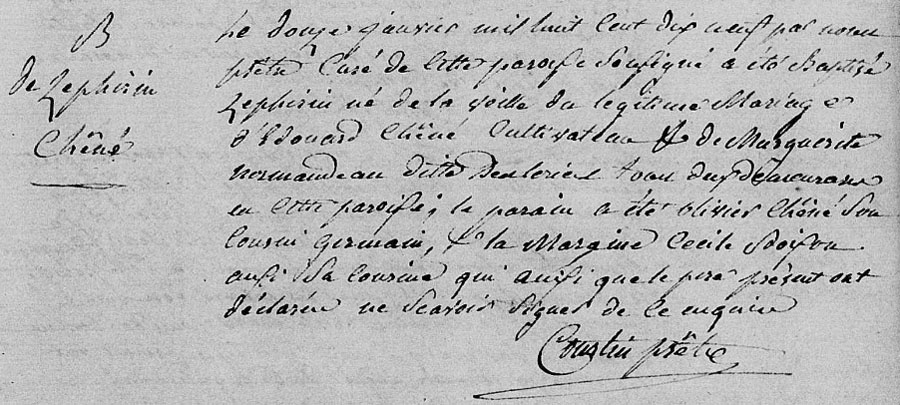 B
de Zephirin
Chêné
Le douze janvier mil huit cent dix neuf par nous
prêtre Curé de cette paroisse soussigné a été Baptisé
Zephirin né de la veille du legitime Mariage
d'Edouard Chêné Cultivateur & de Marguerite
normandeau ditte Deslorier tous deux demeurans
en cette paroisse; le parain a été olivier Chêné son
Cousin germain, & la Maraine Cecile
aussi Sa Cousine qui aussi que le pere présent ont
déclarée ne Scavoir Signer de ce enquise
prêtre